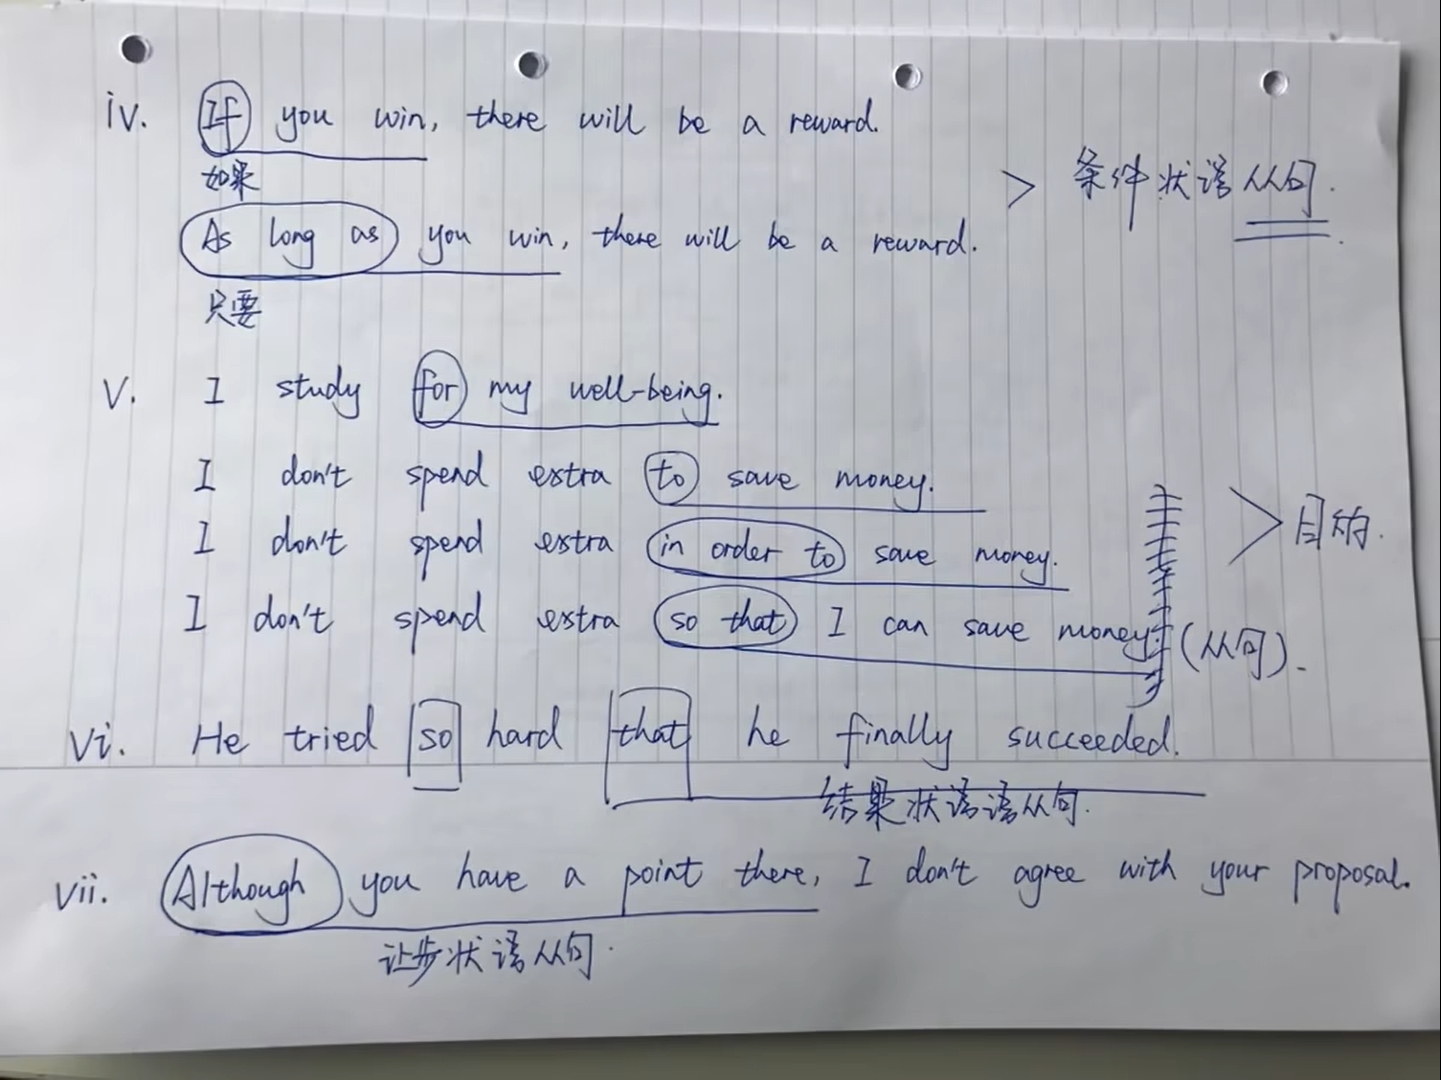 iv. If you win, there will be a reward.
如果
> 条件状语从句.
As long as you win, there will be a reward.
只要
v. I study for my well-being.
I don't spend extra to save money.
I don't spend extra in order to save money.
> 目的.
I don't spend extra so that I can save money. (从句).
vi. He tried so hard that he finally succeeded.
结果状语语从句.
vii. Although you have a point there, I don't agree with your proposal.
让步状语从句.